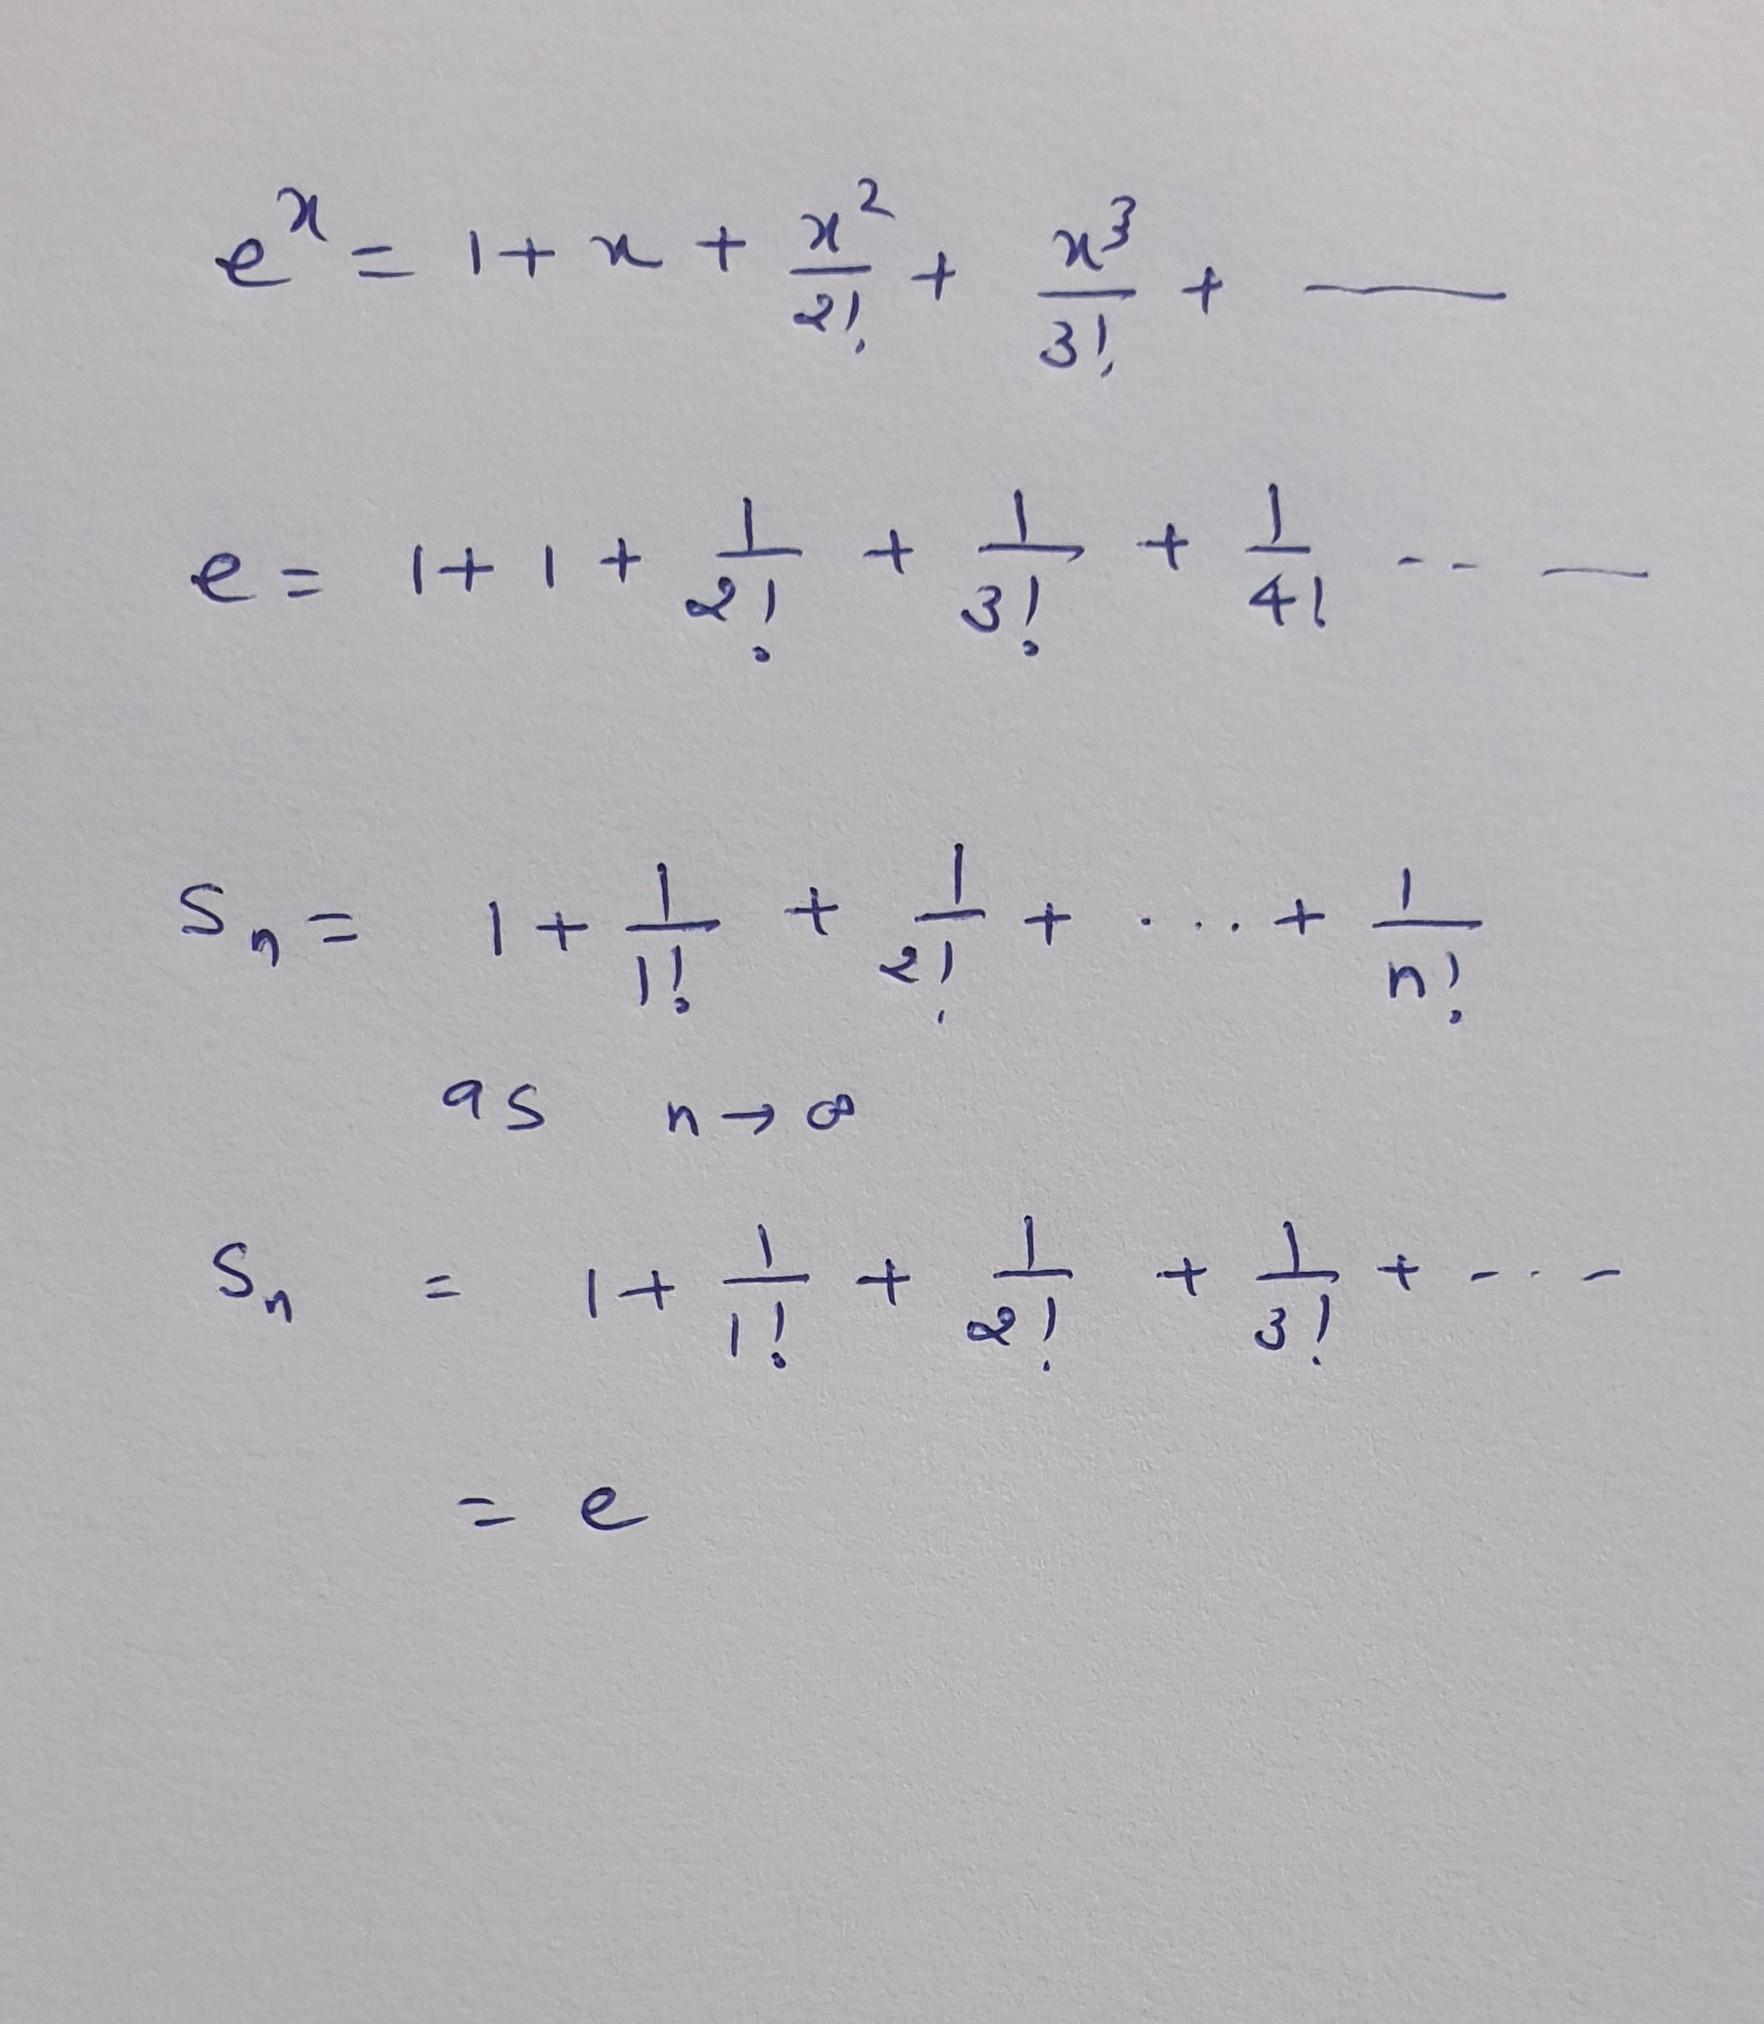 e^x = 1 + x + x^2/2! + x^3/3! + ——
e = 1 + 1 + 1/2! + 1/3! + 1/4! -- —
S_n = 1 + 1/1! + 1/2! + .... + 1/n!
as n → ∞
S_n = 1 + 1/1! + 1/2! + 1/3! + ----
= e